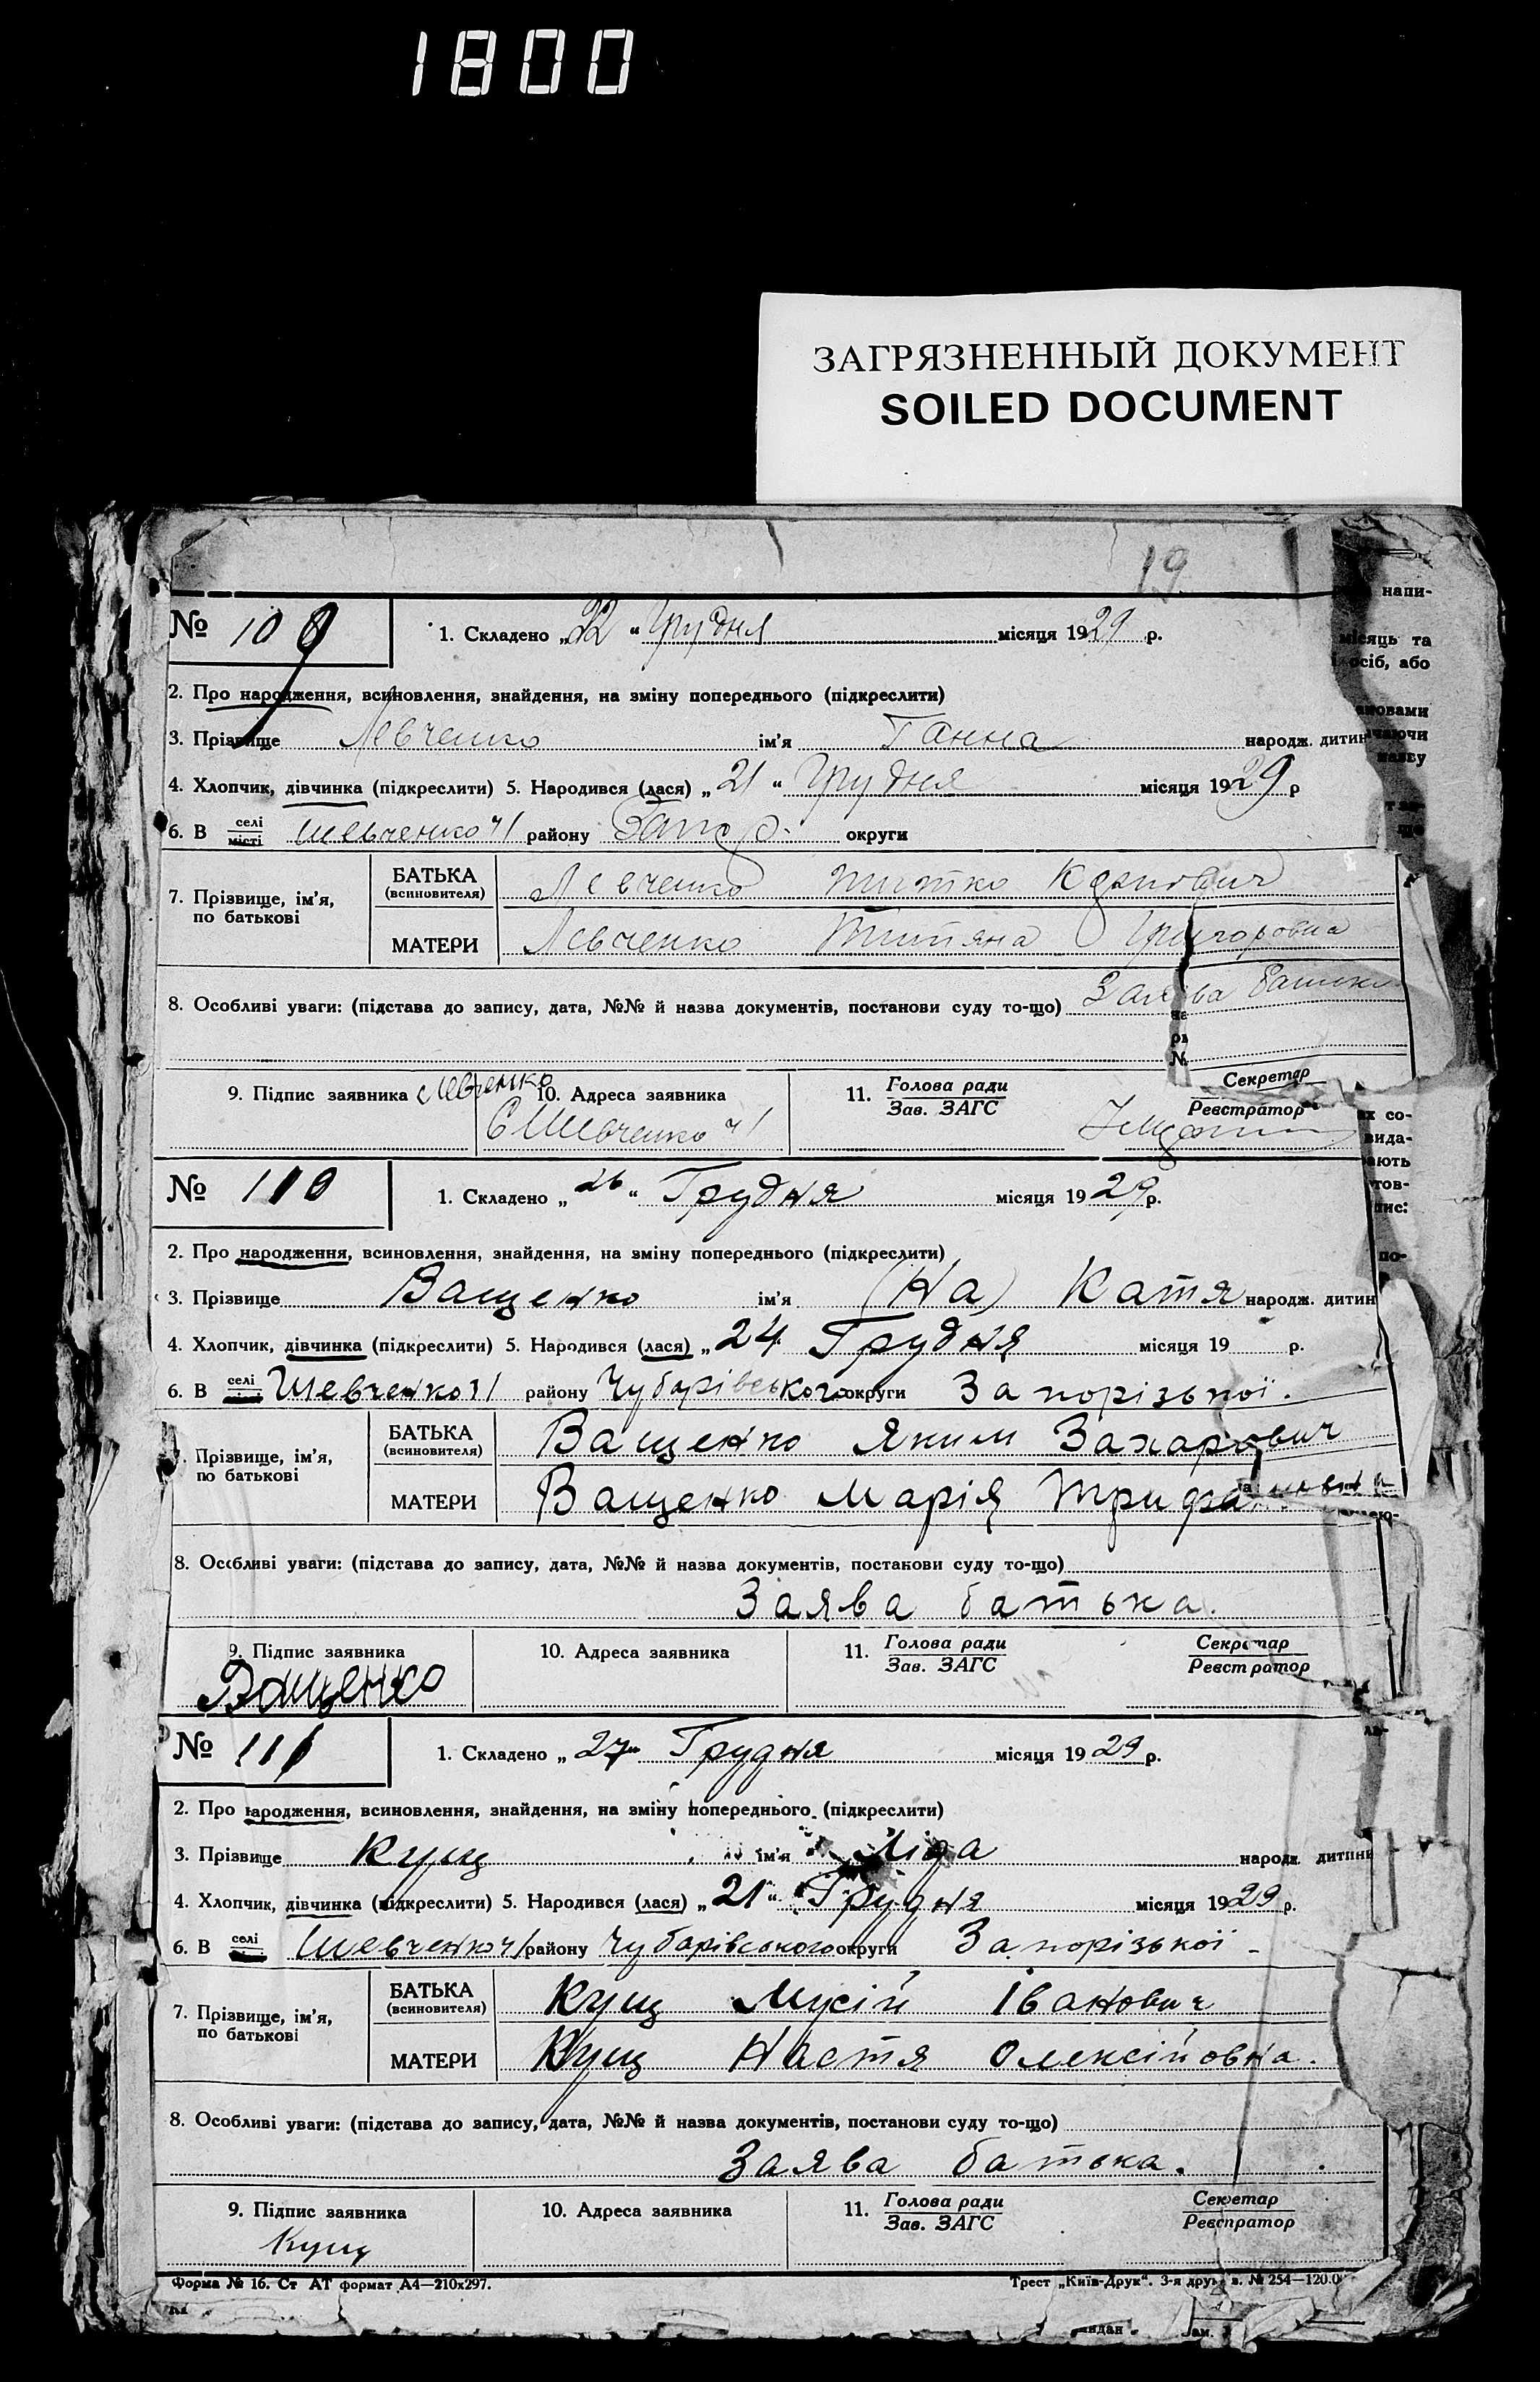 1800
ЗАГРЯЗНЕННЫЙ ДОКУМЕНТ
SOILED DOCUMENT
19
напи-
№ 109
1. Складено „22“ Грудня місяця 1929 р.
місяць та
осіб, або
2. Про народження, всиновлення, знайдення, на зміну попереднього (підкреслити)
3. Прізвище Левченко ім'я Ганна народж. дитин
4. Хлопчик, дівчинка (підкреслити) 5. Народився (лася) „21“ Грудня місяця 1929 р
6. В селі місті Шевченко ч1 району Запор. округи
7. Прізвище, ім'я, по батькові
БАТЬКА (всиновителя) Левченко Титко Карпович
МАТЕРИ Левченко Титяна Григоровна
8. Особливі уваги: (підстава до запису, дата, №№ й назва документів, постанови суду то-що) Заява батька
9. Підпис заявника Левченко
10. Адреса заявника С Шевченко ч1
11. Голова ради Зав. ЗАГС
Секретар Реєстратор
№ 110
1. Складено „26“ Грудня місяця 1929 р.
2. Про народження, всиновлення, знайдення, на зміну попереднього (підкреслити)
3. Прізвище Ващенко ім'я (На) Катя народж. дитин
4. Хлопчик, дівчинка (підкреслити) 5. Народився (лася) „24 Грудня місяця 19 р.
6. В селі Шевченко ч1 району Чубарівського округи Запорізької.
Прізвище, ім'я, по батькові
БАТЬКА (всиновителя) Ващенко Яким Захарович
МАТЕРИ Ващенко Марія
8. Особливі уваги: (підстава до запису, дата, №№ й назва документів, постанови суду то-що)
Заява батька.
9. Підпис заявника Ващенко
10. Адреса заявника
11. Голова ради Зав. ЗАГС
Секретар Реєстратор
№ 111
1. Складено „27“ Грудня місяця 1929 р.
2. Про народження, всиновлення, знайдення, на зміну попереднього (підкреслити)
3. Прізвище Кущ ім'я Ліда народж. дитини
4. Хлопчик, дівчинка (підкреслити) 5. Народився (лася) „21“ Грудня місяця 1929 р.
6. В селі Шевченко ч1 району Чубарівського округи Запорізької
7. Прізвище, ім'я, по батькові
БАТЬКА (всиновителя) Кущ Мусій Іванович
МАТЕРИ Кущ Настя Олексійовна.
8. Особливі уваги: (підстава до запису, дата, №№ й назва документів, постанови суду то-що)
Заява батька.
9. Підпис заявника Кущ
10. Адреса заявника
11. Голова ради Зав. ЗАГС
Секретар Реєстратор
Форма № 16. Ст АТ формат А4—210х297.
Трест „Київ-Друк“. 3-я друк. в. № 254—120.0